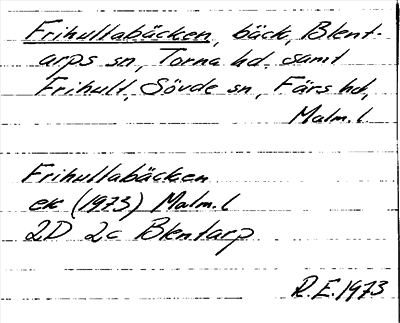 Frihultabäcken, bäck, Blent-
arps sn, Torna hd. samt
Frihult, Sövde sn, Färs hd,
Malm.l
Frihultabäcken
ek (1973) Malm.l
2D 2c Blentarp
R.E. 1973